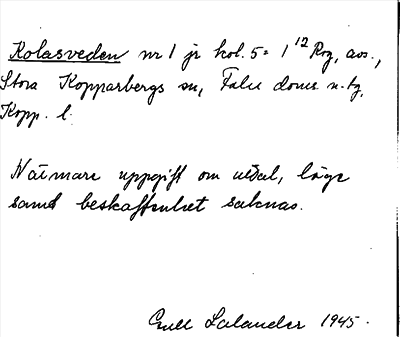 Kolasveden nr 1 jr kol. 5 = 1 12 Rog, avs.,
Stora Kopparbergs sn, Falu doms. n. tg,
Kopp. l.
Närmare uppgift om uttal, läge
samt beskaffenhet saknas.
Lalander 1945.